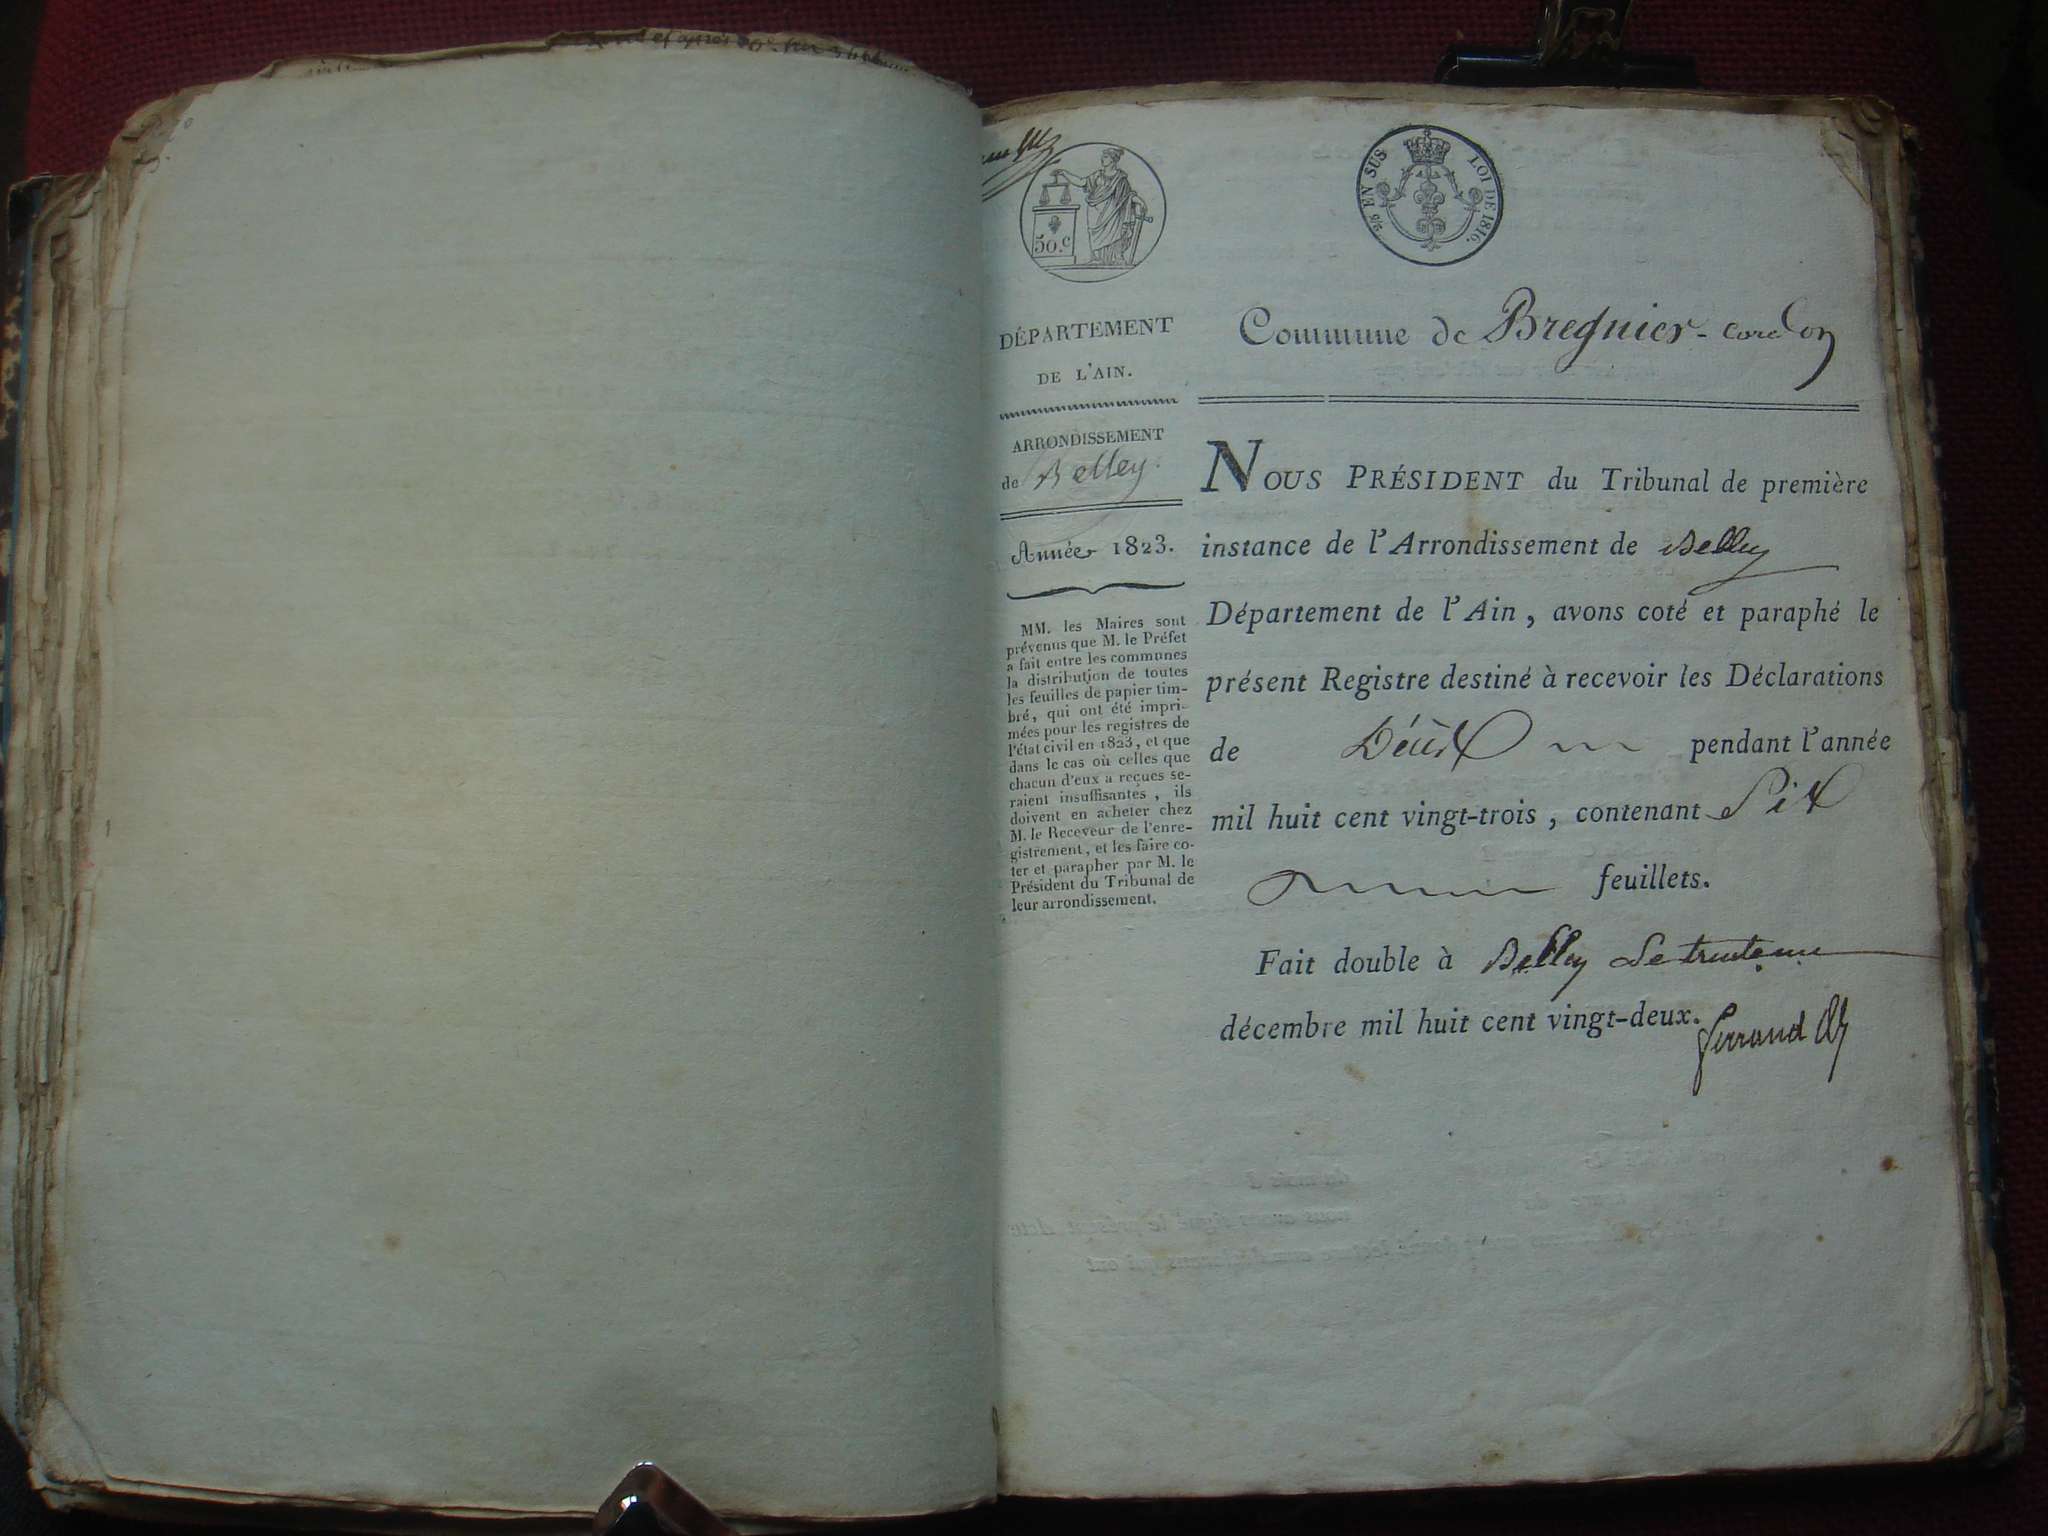 50.c
EN SUS LOI DE 1816.
DÉPARTEMENT
DE L'AIN.
ARRONDISSEMENT
de Belley.
Année 1823.
MM. les Maires sont
prévenus que M. le Préfet
a fait entre les communes
la distribution de toutes
les feuilles de papier tim-
bré, qui ont été impri-
mées pour les registres de
l'état civil en 1823, et que
dans le cas où celles que
chacun d'eux a reçues se-
raient insuffisantes, ils
doivent en acheter chez
M. le Receveur de l'enre-
gistrement, et les faire co-
ter et parapher par M. le
Président du Tribunal de
leur arrondissement.
Commune de Bregnier-cordon
NOUS PRÉSIDENT du Tribunal de première
instance de l'Arrondissement de Belley
Département de l'Ain, avons coté et paraphé le
présent Registre destiné à recevoir les Déclarations
de Décès pendant l'année
mil huit cent vingt-trois, contenant Six
feuillets.
Fait double à Belley Le trente un
décembre mil huit cent vingt-deux.
Ferrand